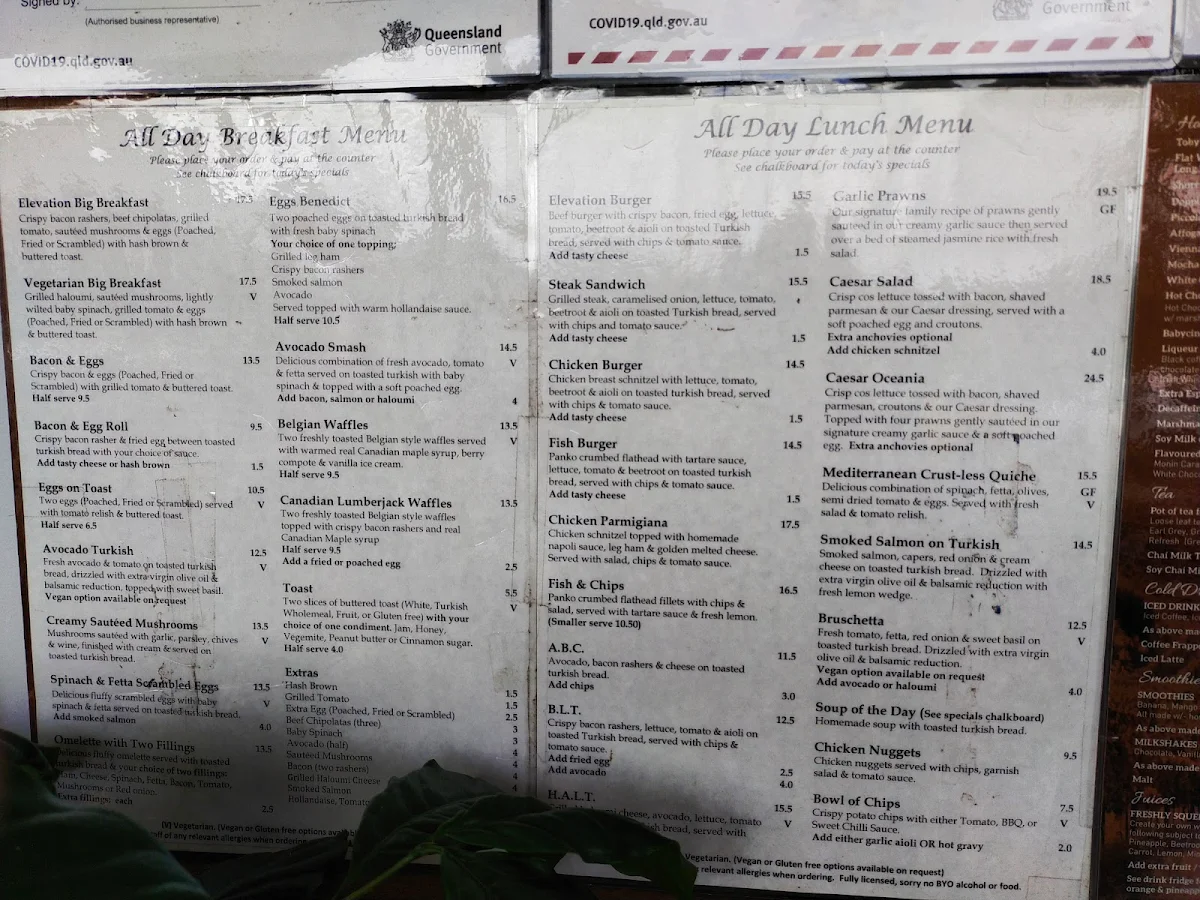 Signed by:
(Authorised business representative)
Queensland
Government
COVID19.qld.gov.au
COVID19.qld.gov.au
Government
All Day Breakfast Menu
Please place your order & pay at the counter
See chalkboard for today's specials
Elevation Big Breakfast 17.5
Crispy bacon rashers, beef chipolatas, grilled
tomato, sautéed mushrooms & eggs (Poached,
Fried or Scrambled) with hash brown &
buttered toast.
Vegetarian Big Breakfast 17.5
Grilled haloumi, sautéed mushrooms, lightly V
wilted baby spinach, grilled tomato & eggs
(Poached, Fried or Scrambled) with hash brown
& buttered toast.
Bacon & Eggs 13.5
Crispy bacon & eggs (Poached, Fried or
Scrambled) with grilled tomato & buttered toast.
Half serve 9.5
Bacon & Egg Roll 9.5
Crispy bacon rasher & fried egg between toasted
turkish bread with your choice of sauce.
Add tasty cheese or hash brown 1.5
Eggs on Toast 10.5
Two eggs (Poached, Fried or Scrambled) served V
with tomato relish & buttered toast.
Half serve 6.5
Avocado Turkish 12.5
Fresh avocado & tomato on toasted turkish V
bread, drizzled with extra virgin olive oil &
balsamic reduction, topped with sweet basil.
Vegan option available on request
Creamy Sautéed Mushrooms 13.5
Mushrooms sautéed with garlic, parsley, chives V
& wine, finished with cream & served on
toasted turkish bread.
Spinach & Fetta Scrambled Eggs 13.5
Delicious fluffy scrambled eggs with baby V
spinach & fetta served on toasted turkish bread.
Add smoked salmon 4.0
Omelette with Two Fillings 13.5
Delicious fluffy omelette served with toasted
turkish bread & your choice of two fillings:
Ham, Cheese, Spinach, Fetta, Bacon, Tomato,
Mushrooms or Red onion.
Extra fillings: each 2.5
Eggs Benedict 16.5
Two poached eggs on toasted turkish bread
with fresh baby spinach
Your choice of one topping;
Grilled leg ham
Crispy bacon rashers
Smoked salmon
Avocado
Served topped with warm hollandaise sauce.
Half serve 10.5
Avocado Smash 14.5
Delicious combination of fresh avocado, tomato V
& fetta served on toasted turkish with baby
spinach & topped with a soft poached egg.
Add bacon, salmon or haloumi 4
Belgian Waffles 13.5
Two freshly toasted Belgian style waffles served V
with warmed real Canadian maple syrup, berry
compote & vanilla ice cream.
Half serve 9.5
Canadian Lumberjack Waffles 13.5
Two freshly toasted Belgian style waffles
topped with crispy bacon rashers and real
Canadian Maple syrup
Half serve 9.5
Add a fried or poached egg 2.5
Toast 5.5
Two slices of buttered toast (White, Turkish V
Wholemeal, Fruit, or Gluten free) with your
choice of one condiment. Jam, Honey,
Vegemite, Peanut butter or Cinnamon sugar.
Half serve 4.0
Extras
Hash Brown 1.5
Grilled Tomato 1.5
Extra Egg (Poached, Fried or Scrambled) 2.5
Beef Chipolatas (three) 3
Baby Spinach 3
Avocado (half) 4
Sautéed Mushrooms 4
Bacon (two rashers) 4
Grilled Haloumi Cheese
Smoked Salmon
Hollandaise, Tomato
(V) Vegetarian. (Vegan or Gluten free options
of any relevant allergies when ordering.
All Day Lunch Menu
Please place your order & pay at the counter
See chalkboard for today's specials
Elevation Burger 15.5
Beef burger with crispy bacon, fried egg, lettuce,
tomato, beetroot & aioli on toasted Turkish
bread, served with chips & tomato sauce.
Add tasty cheese 1.5
Steak Sandwich 15.5
Grilled steak, caramelised onion, lettuce, tomato,
beetroot & aioli on toasted Turkish bread, served
with chips and tomato sauce.
Add tasty cheese 1.5
Chicken Burger 14.5
Chicken breast schnitzel with lettuce, tomato,
beetroot & aioli on toasted turkish bread, served
with chips & tomato sauce.
Add tasty cheese 1.5
Fish Burger 14.5
Panko crumbed flathead with tartare sauce,
lettuce, tomato & beetroot on toasted turkish
bread, served with chips & tomato sauce.
Add tasty cheese 1.5
Chicken Parmigiana 17.5
Chicken schnitzel topped with homemade
napoli sauce, leg ham & golden melted cheese.
Served with salad, chips & tomato sauce.
Fish & Chips 16.5
Panko crumbed flathead fillets with chips &
salad, served with tartare sauce & fresh lemon.
(Smaller serve 10.50)
A.B.C. 11.5
Avocado, bacon rashers & cheese on toasted
turkish bread.
Add chips 3.0
B.L.T. 12.5
Crispy bacon rashers, lettuce, tomato & aioli on
toasted Turkish bread, served with chips &
tomato sauce.
Add fried egg 2.5
Add avocado 4.0
H.A.L.T. 15.5
cheese, avocado, lettuce, tomato V
bread, served with
Garlic Prawns 19.5
Our signature family recipe of prawns gently GF
sautéed in our creamy garlic sauce then served
over a bed of steamed jasmine rice with fresh
salad.
Caesar Salad 18.5
Crisp cos lettuce tossed with bacon, shaved
parmesan & our Caesar dressing, served with a
soft poached egg and croutons.
Extra anchovies optional
Add chicken schnitzel 4.0
Caesar Oceania 24.5
Crisp cos lettuce tossed with bacon, shaved
parmesan, croutons & our Caesar dressing.
Topped with four prawns gently sautéed in our
signature creamy garlic sauce & a soft poached
egg. Extra anchovies optional
Mediterranean Crust-less Quiche 15.5
Delicious combination of spinach, fetta, olives, GF
semi dried tomato & eggs. Served with fresh V
salad & tomato relish.
Smoked Salmon on Turkish 14.5
Smoked salmon, capers, red onion & cream
cheese on toasted turkish bread. Drizzled with
extra virgin olive oil & balsamic reduction with
fresh lemon wedge.
Bruschetta 12.5
Fresh tomato, fetta, red onion & sweet basil on V
toasted turkish bread. Drizzled with extra virgin
olive oil & balsamic reduction.
Vegan option available on request
Add avocado or haloumi 4.0
Soup of the Day (See specials chalkboard)
Homemade soup with toasted turkish bread.
Chicken Nuggets 9.5
Chicken nuggets served with chips, garnish
salad & tomato sauce.
Bowl of Chips 7.5
Crispy potato chips with either Tomato, BBQ, or V
Sweet Chilli Sauce.
Add either garlic aioli OR hot gravy 2.0
Vegetarian. (Vegan or Gluten free options available on request)
relevant allergies when ordering. Fully licensed, sorry no BYO alcohol or food.
Toby
Flat
Long
Affog
Vienna
Mocha
White
Hot Cho
Babycin
Liqueur
Extra Esp
Decaffein
Marshma
Soy Milk
Flavoured
Tea
Pot of tea
Loose leaf
Earl Grey,
Refresh
Chai Milk T
Soy Chai Mi
Cold D
ICED DRINK
Iced Coffee,
As above ma
Coffee Frapp
Iced Latte
Smoothie
SMOOTHIES
Banana, Mango
All made w/
As above made
MILKSHAKES
Chocolate, Vanill
As above made
Malt
Juices
FRESHLY SQUE
Create your own
following subject
Pineapple, Beetroo
Carrot, Lemon,
Add extra fruit /
See drink fridge
orange & pineapp